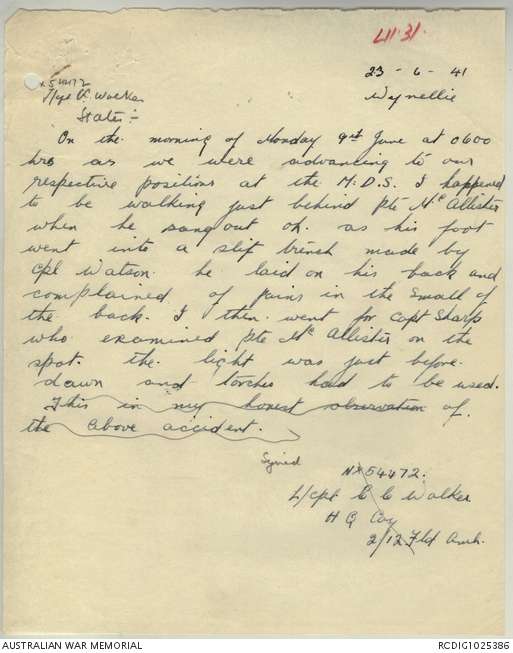 LH.31.
23 - 6 - 41
Wynellie
x54472
L/cpl C. Walker
States:-
On the morning of Monday 9th June at 0600
hrs as we were advancing to our
respective positions at the M.D.S. I happened
to be walking just behind pte McAllister
when he sang out oh. as his foot
went into a slip trench made by
Cpl Watson. he laid on his back and
complained of pains in the small of
the back. I then went for Capt Sharp
who examined pte McAllister on the
spot. the light was just before
dawn and torches had to be used.
This in my honest observation of
the above accident.
Signed
NX 54472.
L/cpl C C Walker
H Q Coy
2/12 Fld Amb.
AUSTRALIAN WAR MEMORIAL
RCDIG1025386